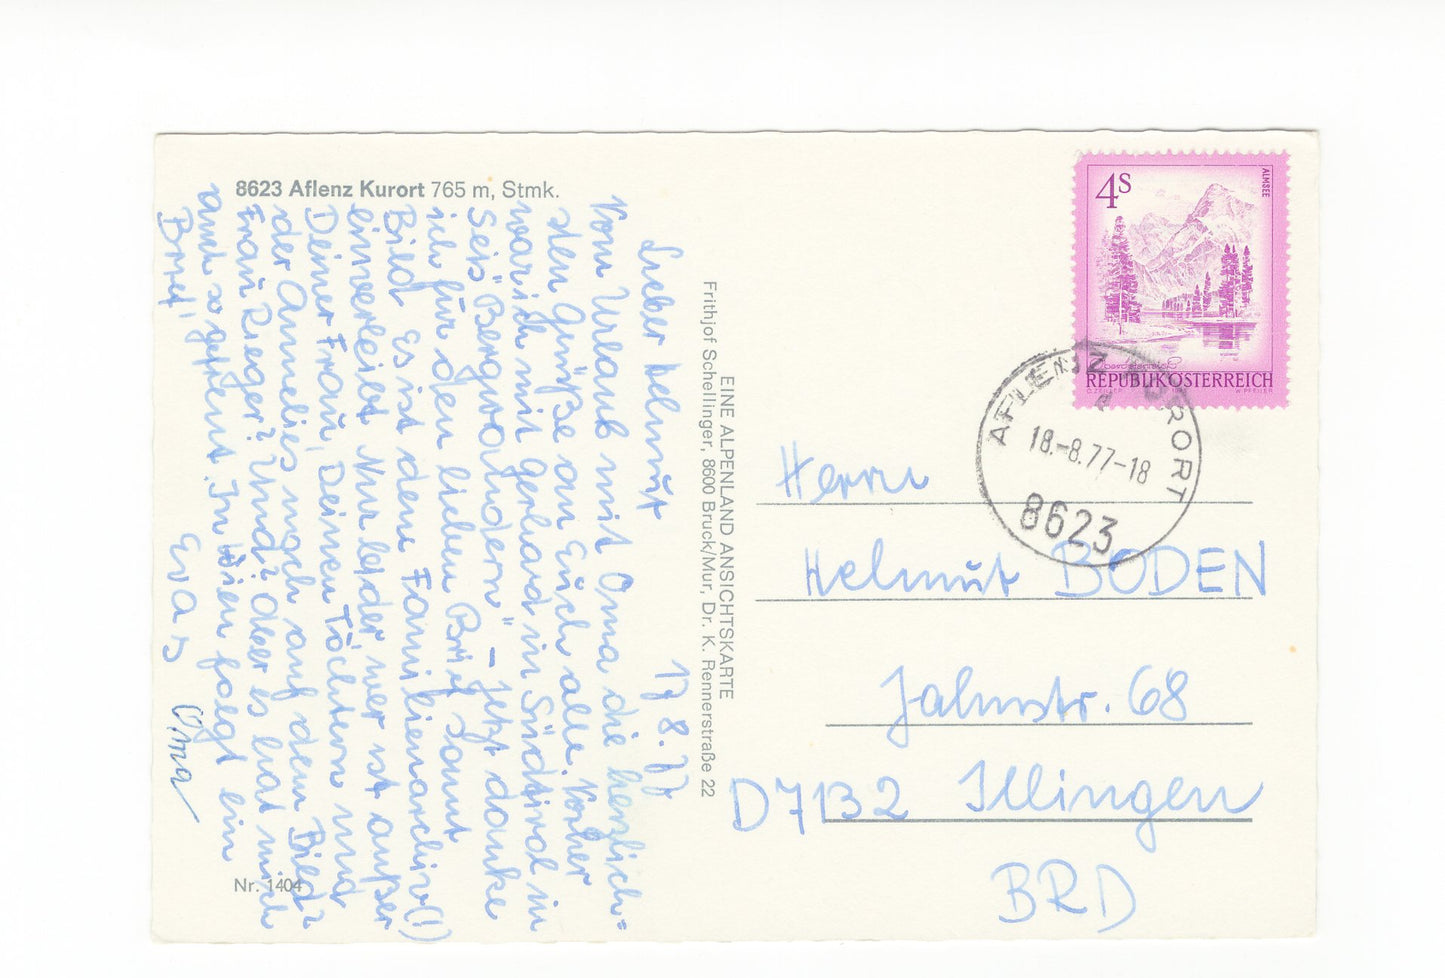 8623 Aflenz Kurort 765 m, Stmk.
17. 8. 77
Lieber Helmut
Vom Urlaub mit Oma die herzlich=
sten Grüße an Euch alle. Vorher
war ich mit Gerhard in Südtirol in
Seis "Bergwandern" – jetzt danke
ich für den lieben Brief samt
Bild. Es ist dem Familienarchiv(!)
einverleibt. Nur leider wer ist außer
Deiner Frau, Deinen Töchtern und
der Annelies noch auf dem Bild?
Frau Rieger? Und? aber es hat mich
auch so gefreut. In Wien folgt ein
Brief!
Eva
Oma
Nr. 1404
EINE ALPENLAND ANSICHTSKARTE
Frithjof Schellinger, 8600 Bruck/Mur, Dr. K. Rennerstraße 22
4S
ALMSEE
REPUBLIK ÖSTERREICH
AFLENZ KURORT
18.-8.77-18
8623
Herrn
Helmut BODEN
Jahnstr. 68
D7132 Illingen
BRD